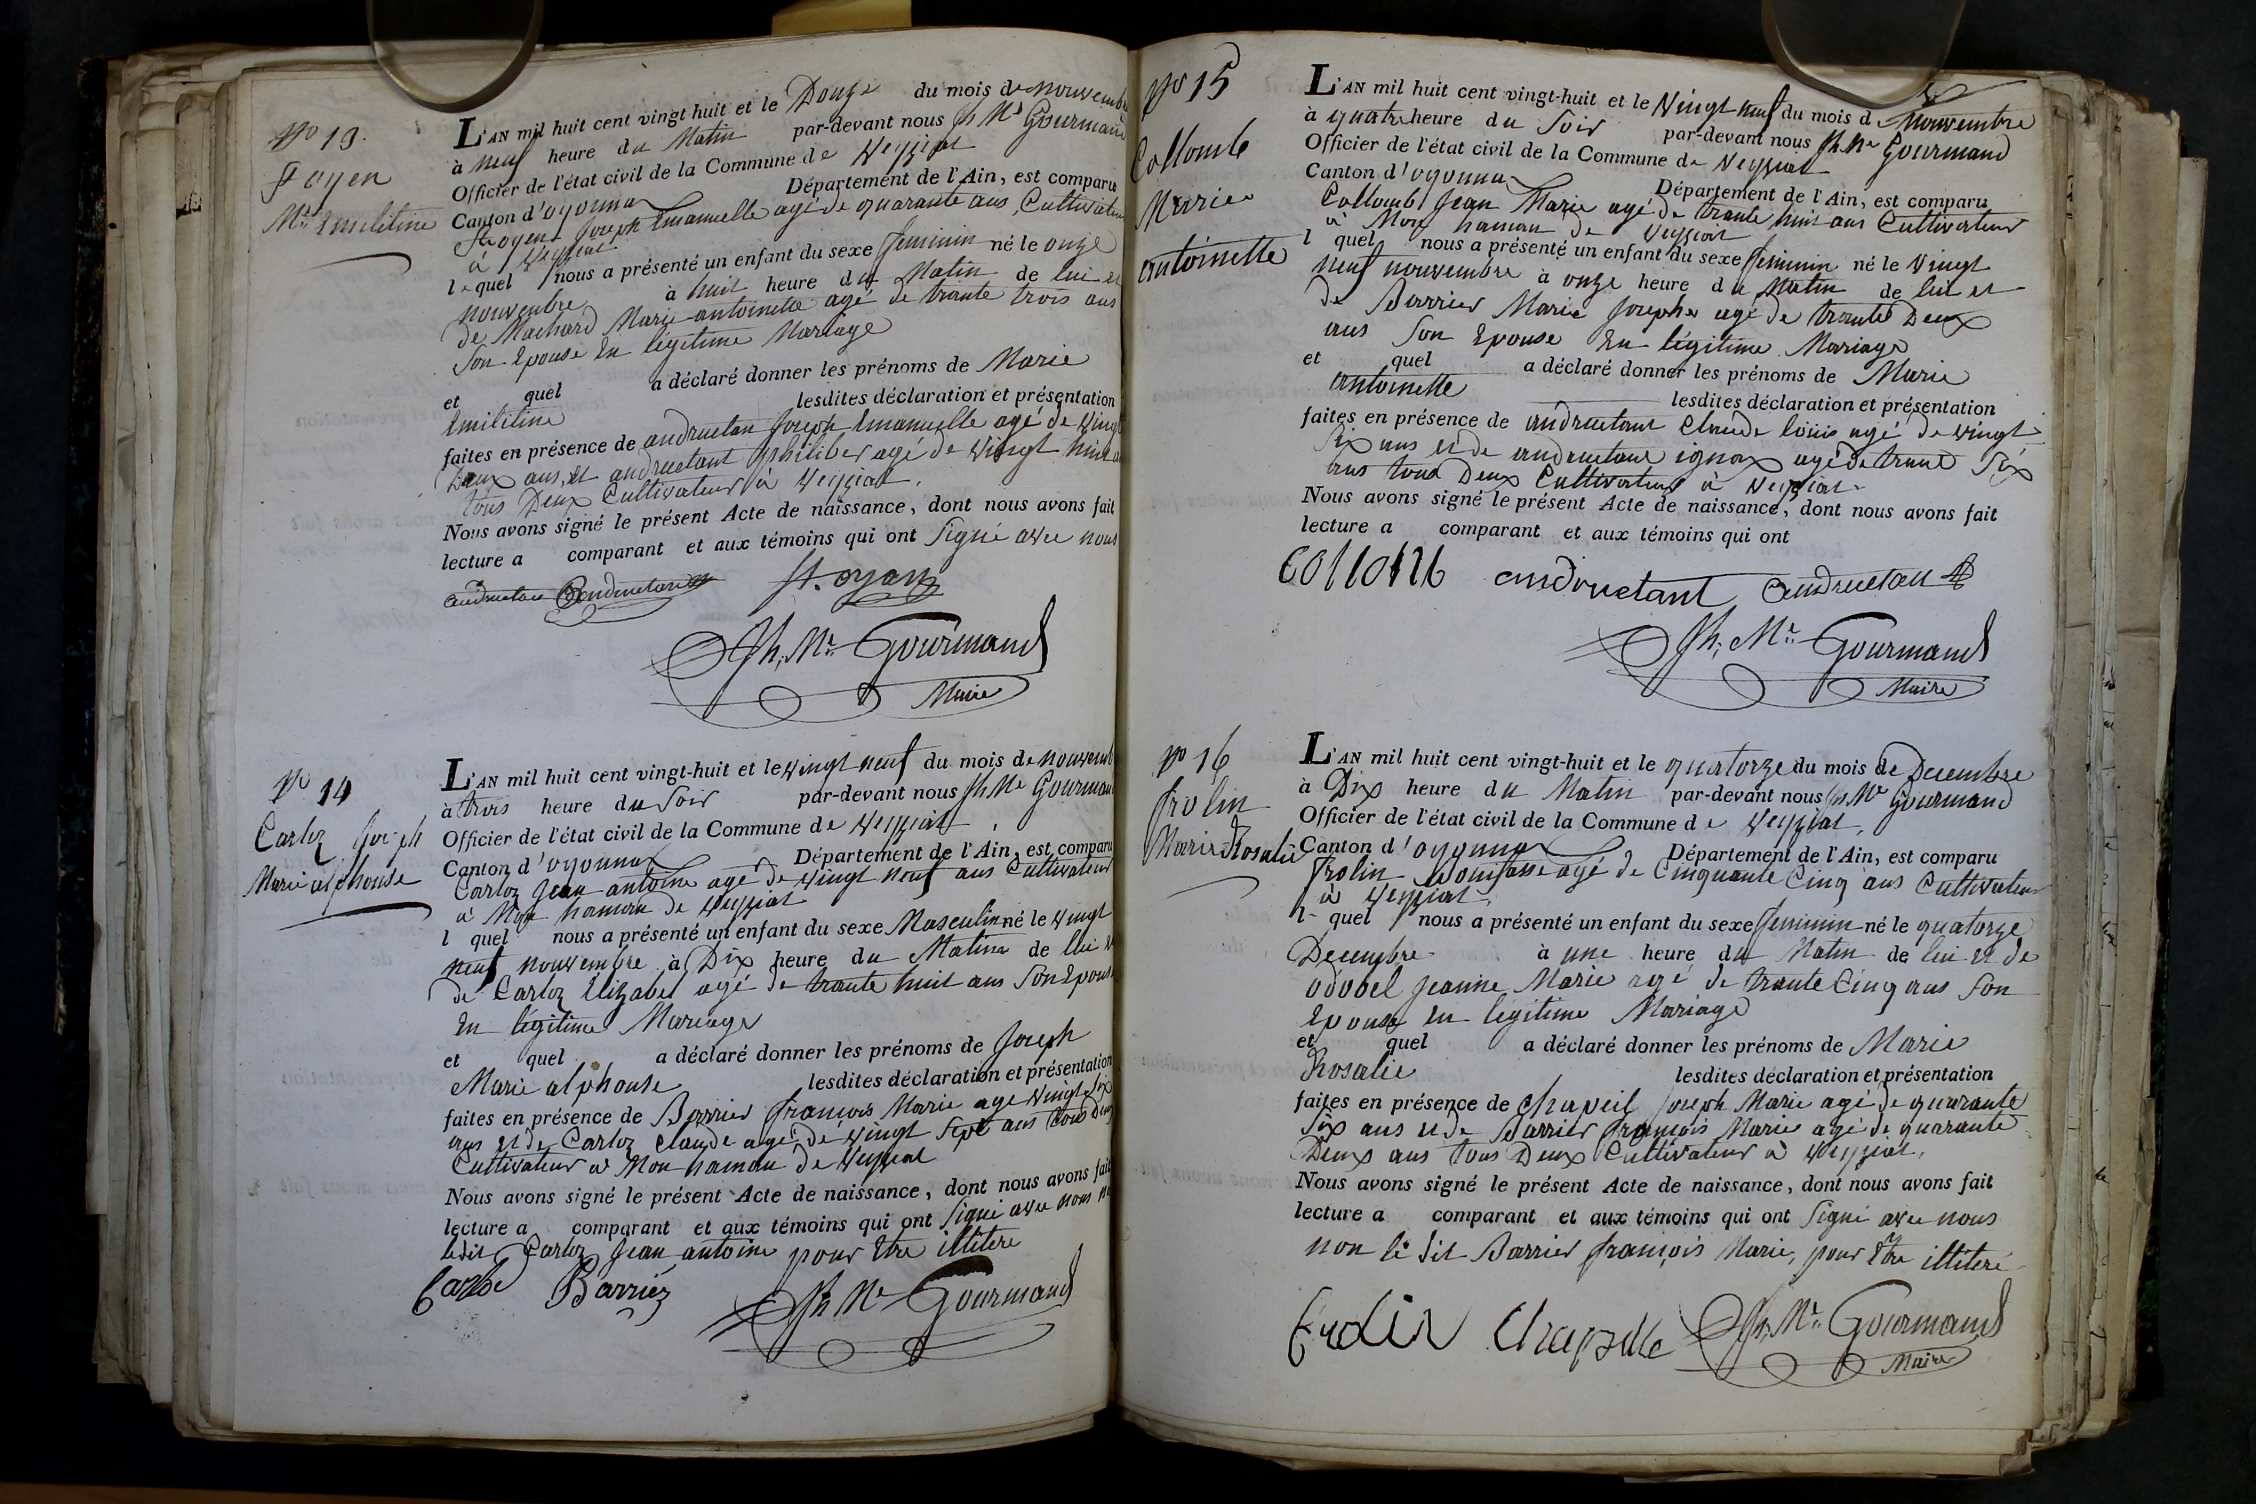 No 13.
St oyen
Mie Emilitine
L'AN mil huit cent vingt-huit et le Douze du mois de nouvembre
à neuf heure du Matin par-devant nous Jh Me Gourmand
Officier de l'état civil de la Commune de Veyziat
Canton d'oyonnax Département de l'Ain, est comparu
St oyent Joseph Emanuelle agé de quarante ans, Cultivateur
à Veyziat
lequel nous a présenté un enfant du sexe feminin né le onze
nouvembre à huit heure du Matin de lui et
de Machard Marie antoinette agé de trante trois ans
Son Epouse En légitime Mariage
et quel a déclaré donner les prénoms de Marie
Emilitine lesdites déclaration et présentation
faites en présence de andruetan Joseph Emanuelle agé de Vingt
Deux ans, et andruetant philiber agé de Vingt huit ans
tous Deux Cultivateur à Veyziat.
Nous avons signé le présent Acte de naissance, dont nous avons fait
lecture a comparant et aux témoins qui ont Signé avec nous
andruetan andruetan St. oyen
Jh. Me Gourmand
Maire
No 14
Carloz Joseph
Marie alphonse
L'AN mil huit cent vingt-huit et le vingt neuf du mois de nouvemb
à trois heure du Soir par-devant nous Jh Me Gourmand
Officier de l'état civil de la Commune de Veyziat
Canton d'oyonnax Département de l'Ain, est comparu
Carloz Jean antoine agé de vingt neuf ans Cultivateur
à Mon hamau de Veyziat
l quel nous a présenté un enfant du sexe Masculin né le vingt
neuf nouvembre à Dix heure du Matin de lui et
de Carloz Elizabet agé de trante huit ans Son Epouse
En légitime Mariage
et quel a déclaré donner les prénoms de Joseph
Marie alphonse lesdites déclaration et présentation
faites en présence de Barrier françois Marie age Vingt Six
ans et de Carloz Claude agé de vingt Sept ans tous Deux
Cultivateur à Mon hamau de Veyziat
Nous avons signé le présent Acte de naissance, dont nous avons fait
lecture a comparant et aux témoins qui ont Signé avec nous non
ledit Carloz Jean antoine pour Etre illitere
Barriéz
Jh Me Gourmand
No 15
Collomb
Marie
antoinette
L'AN mil huit cent vingt-huit et le Vingt neuf du mois de Nouvembre
à quatre heure du Soir par-devant nous Jh Me Gourmand
Officier de l'état civil de la Commune de Veyziat
Canton d'oyonnax Département de l'Ain, est comparu
Collomb Jean Marie agé de trante huit ans Cultivateur
à Mon hamau de Veyziat
l quel nous a présenté un enfant du sexe feminin né le Vingt
neuf nouvembre à onze heure du Matin de lui et
de Barrier Marie Josephe agé de trante Deux
ans Son Epouse En légitime Mariage
et quel a déclaré donner les prénoms de Marie
antoinette lesdites déclaration et présentation
faites en présence de andruetant Claude louis agé de vingt
Six ans et de andruetant ignax agé de trante Six
ans tous Deux Cultivateur à Veyziat.
Nous avons signé le présent Acte de naissance, dont nous avons fait
lecture a comparant et aux témoins qui ont
Collomb andruetant andruetan
Jh. Me Gourmand
Maire
No 16
frolin
Marie Rosalie
L'AN mil huit cent vingt-huit et le quatorze du mois de Decembre
à Dix heure du Matin par-devant nous Jh Me Gourmand
Officier de l'état civil de la Commune de Veyziat,
Canton d'oyonnax Département de l'Ain, est comparu
frolin Bonifasse agé de Cinquante Cinq ans Cultivateur
à Veyziat.
l quel nous a présenté un enfant du sexe feminin né le quatorze
Decembre à une heure du Matin de lui et de
odobel Jeanne Marie agé de trante Cinq ans Son
Epouse En légitime Mariage
et quel a déclaré donner les prénoms de Marie
Rosalie lesdites déclaration et présentation
faites en présence de Chapeil Joseph Marie agé de quarante
Six ans et de Barrier françois Marie agé de quarante
Deux ans tous Deux Cultivateur à Veyziat,
Nous avons signé le présent Acte de naissance, dont nous avons fait
lecture a comparant et aux témoins qui ont Signé avec nous
non le dit Barrier françois Marie, pour Etre illiteré
Jh. Me Gourmand
Maire